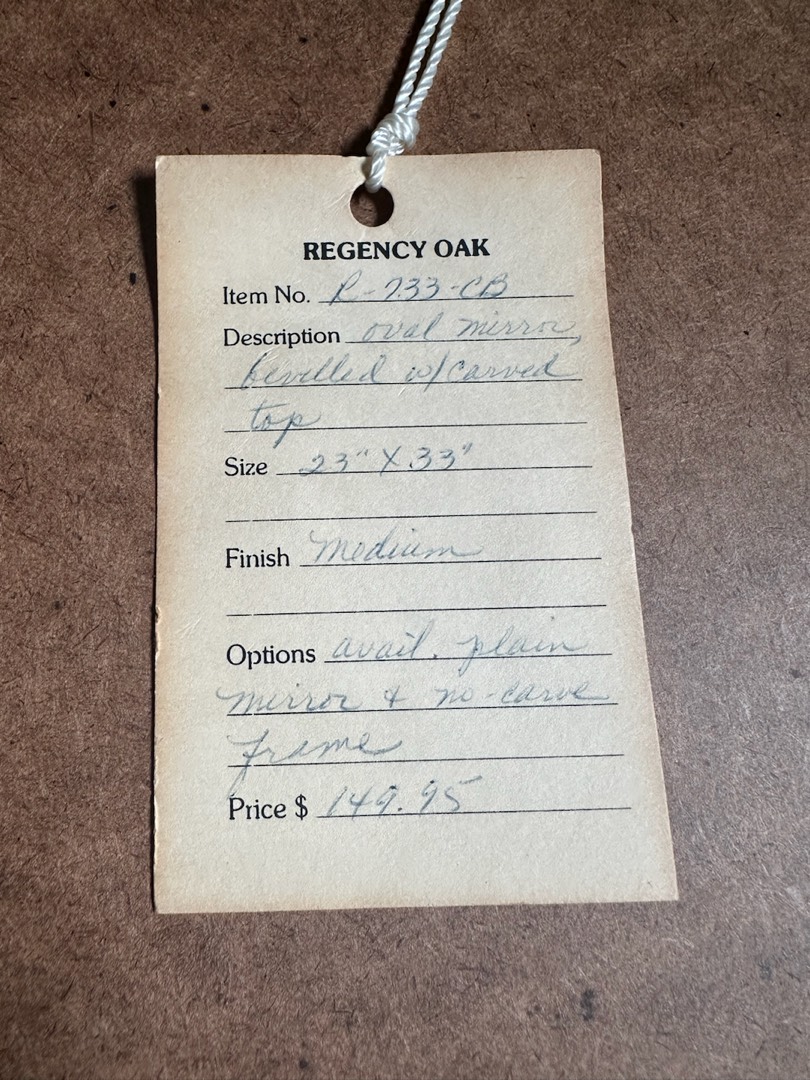 REGENCY OAK
Item No. R-733-CB
Description oval mirror,
bevelled w/carved
top
Size 23" X 33"
Finish Medium
Options avail. plain
mirror & no-carve
frame
Price $ 149.95